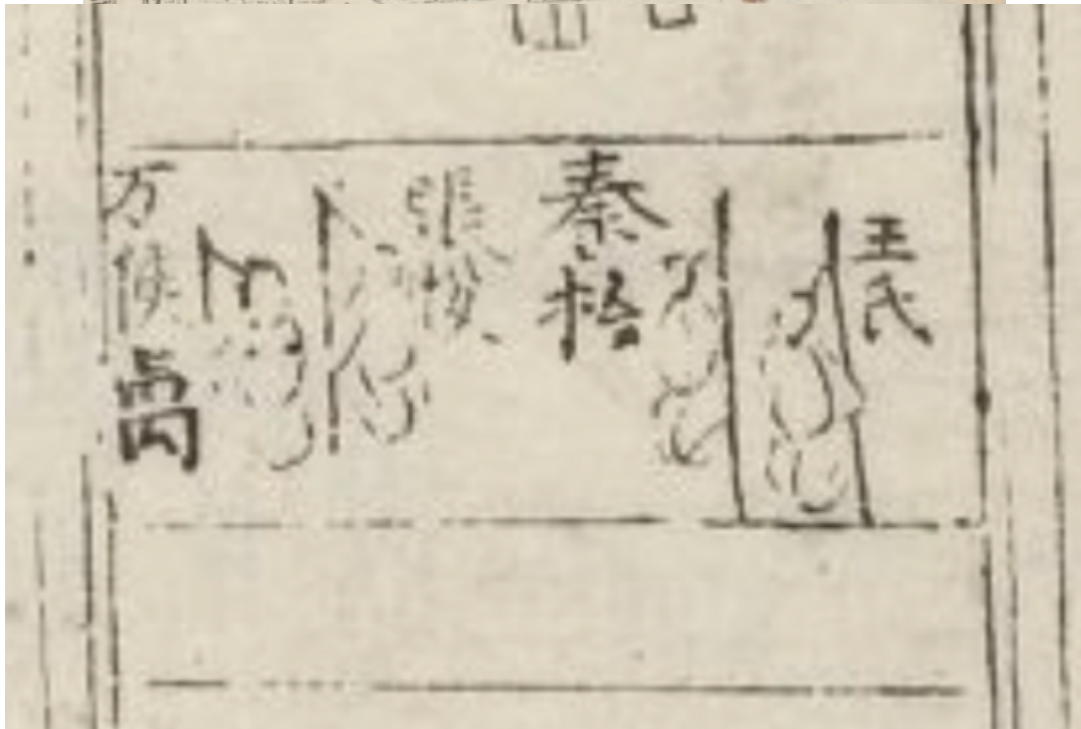 王氏
秦檜
張俊
万俟卨